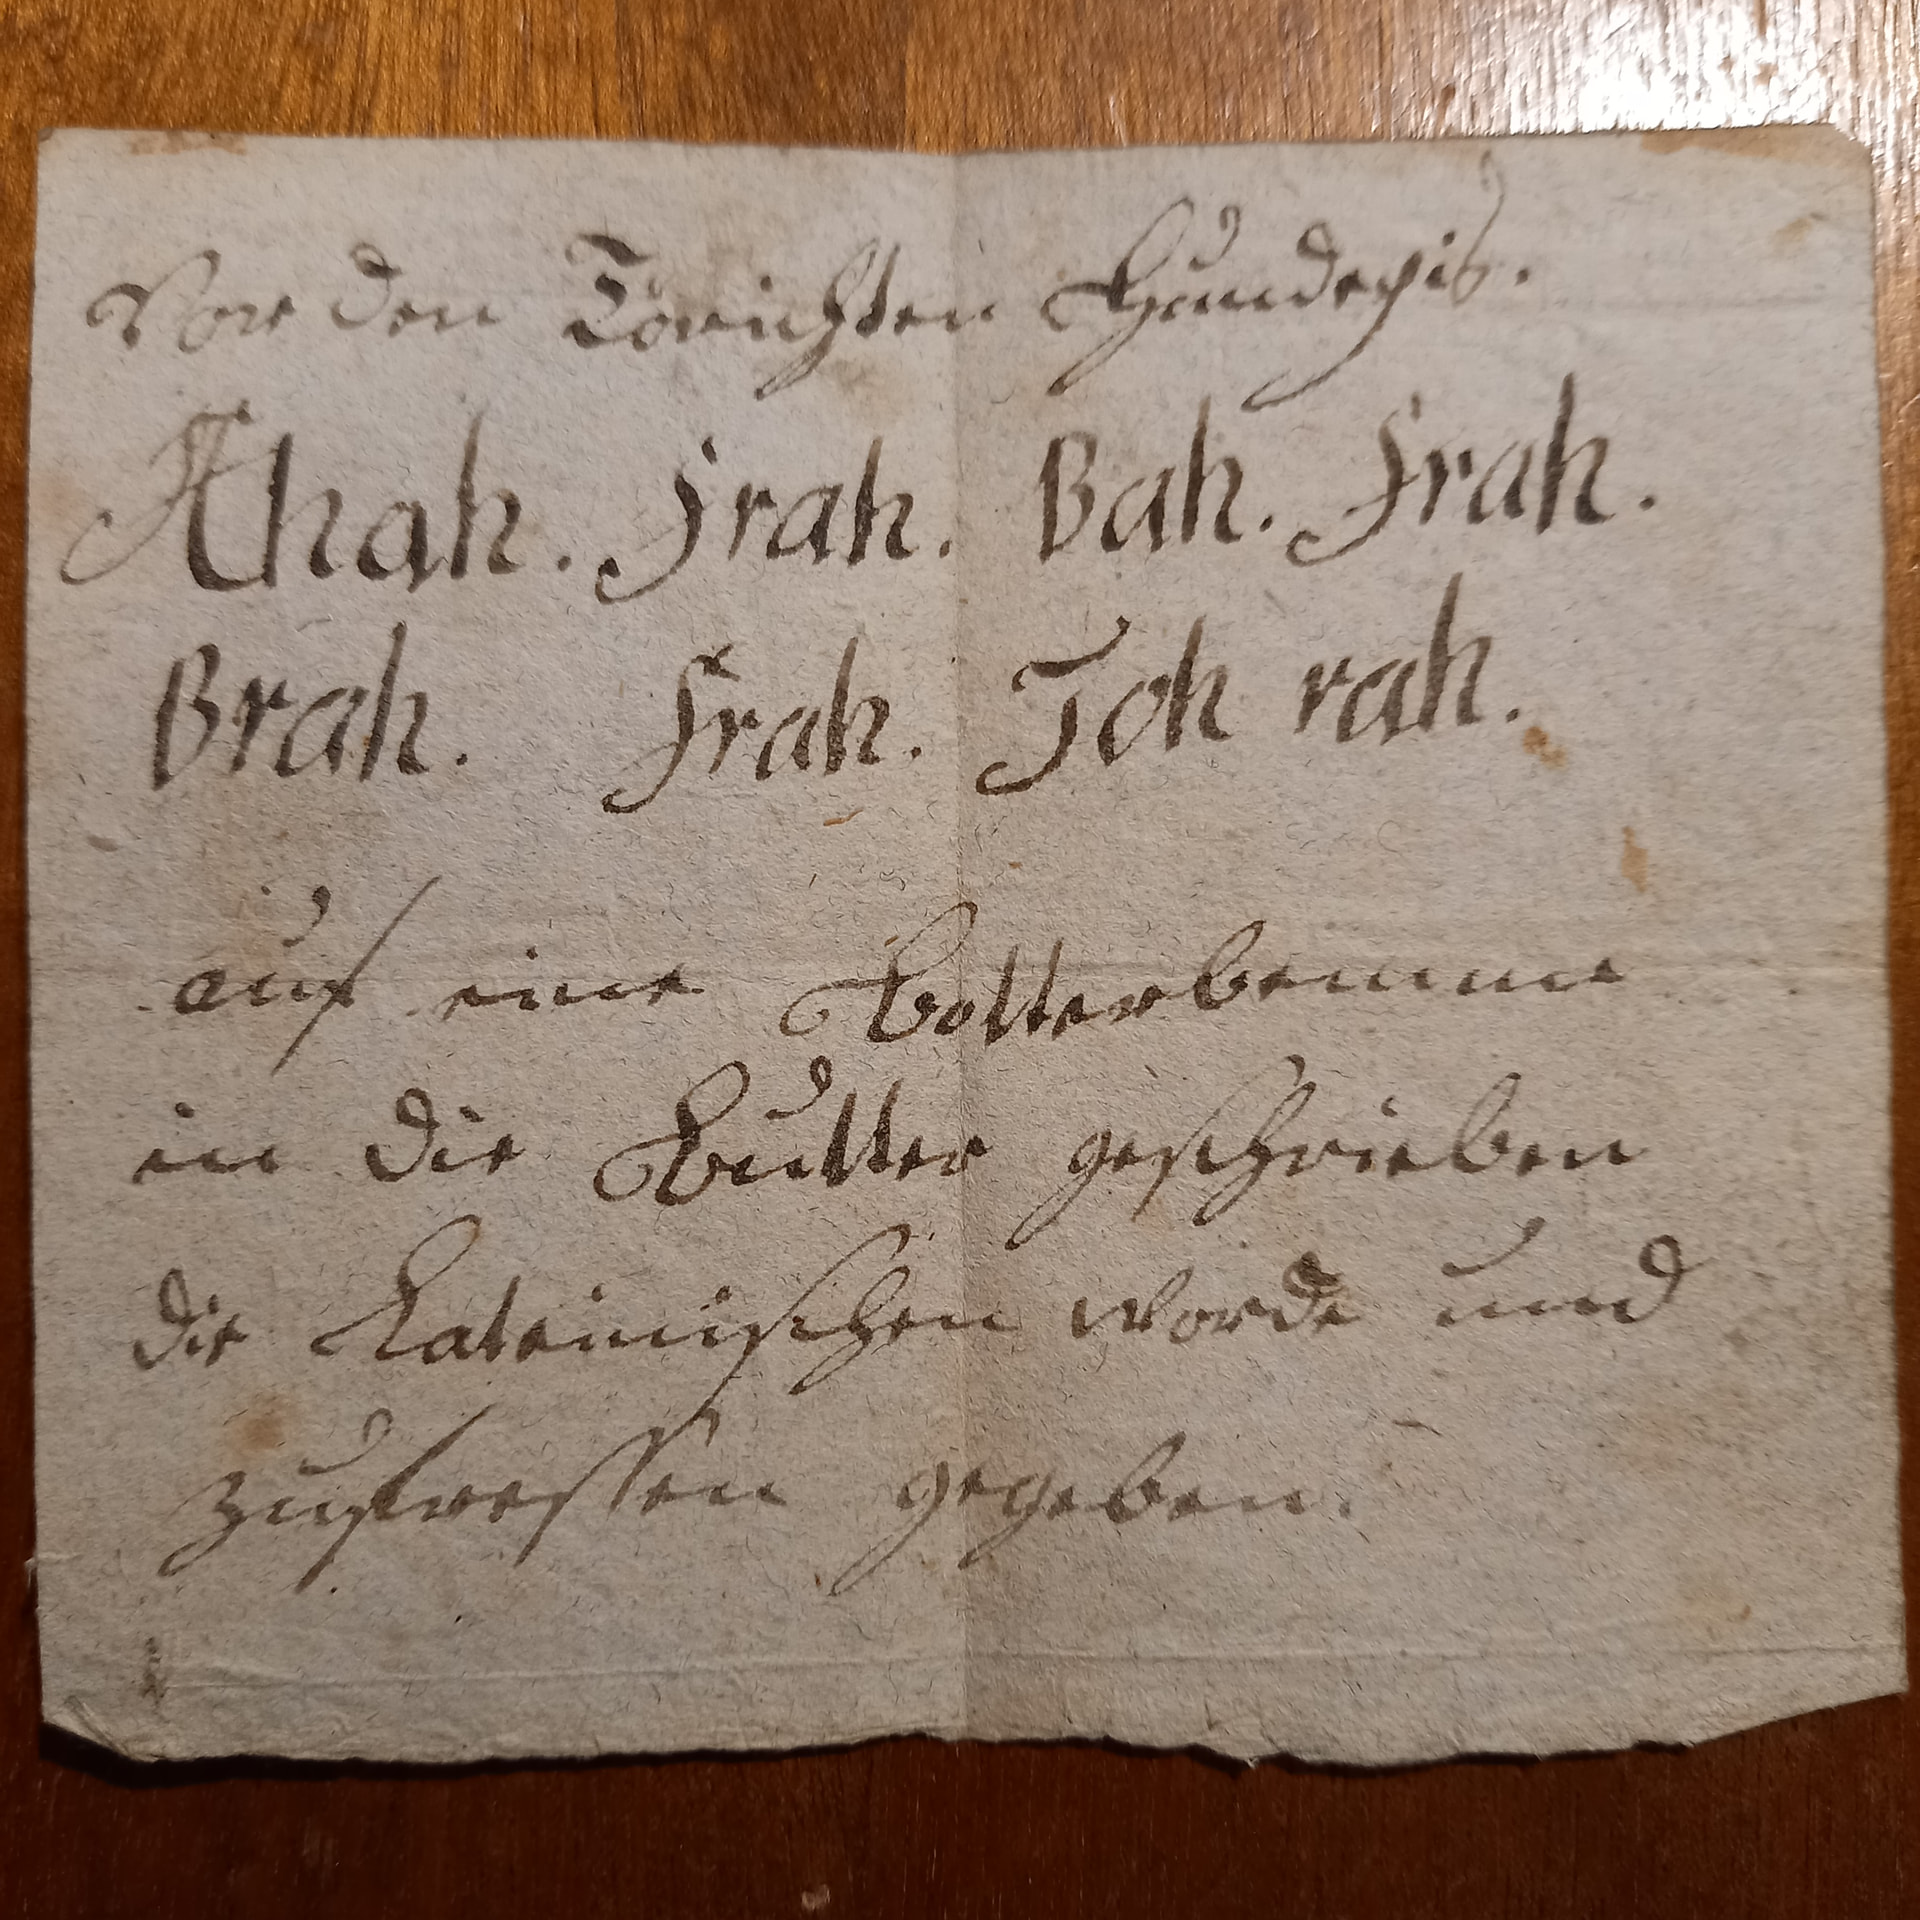 Vor den Törichten Hundepis.
Ahah. Irah. Bah. frah.
Brah. frah. Toh rah.
auf eine Botterbemme
in die Butter geschrieben
die Lateinischen worde und
zufressen gegeben.